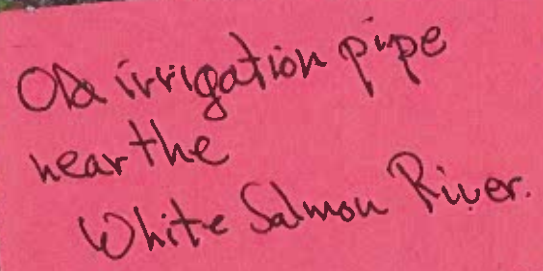 Old irrigation pipe
near the
White Salmon River.